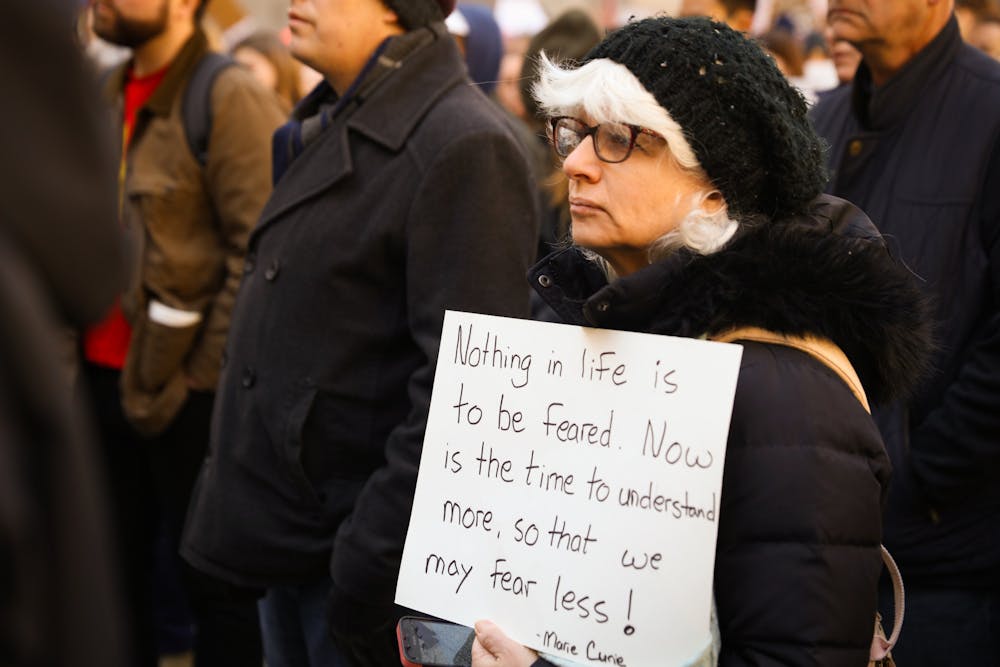 Nothing in life is
to be feared. Now
is the time to understand
more, so that we
may fear less!
-Marie Curie